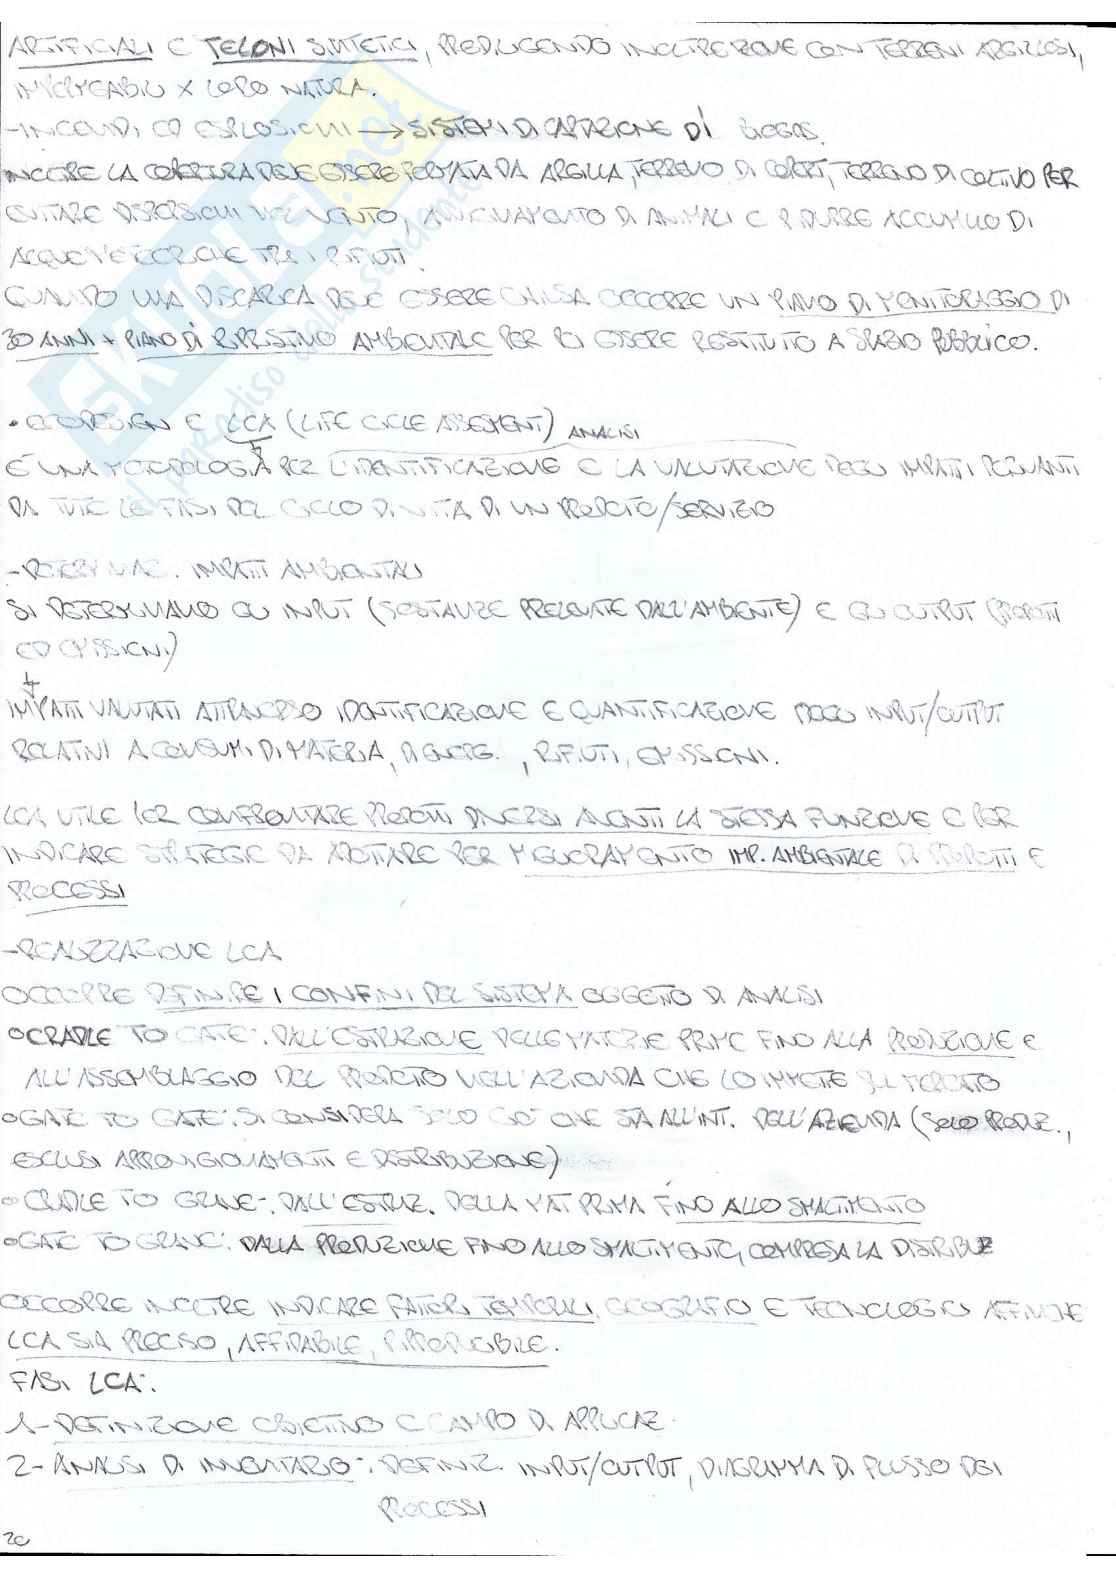 ARTIFICIALI E TELONI SINTETICI, PREDILIGENDO INOLTRE ZONE CON TERRENI ARGILLOSI,
IMPERMEABILI X LORO NATURA.
-INCENDI ED ESPLOSIONI → SISTEMI DI CAPTAZIONE DÌ BIOGAS.
INOLTRE LA COPERTURA DEVE ESSERE FORMATA DA ARGILLA, TERRENO DI COPERT, TERRENO DI COLTIVO PER
EVITARE DISPERSIONI NEL VENTO, AVVICINAMENTO DI ANIMALI E RIDURRE ACCUMULO DI
ACQUE METEORICHE TRA I RIFIUTI.
QUANDO UNA DISCARICA DEVE ESSERE CHIUSA OCCORRE UN PIANO DI MONITORAGGIO DI
30 ANNI + PIANO DÌ RIPRISTINO AMBIENTALE PER POI ESSERE RESTITUITO A SPAZIO PUBBLICO.
• ECODESIGN E LCA (LIFE CICLE ASSESMENT) ANALISI
È UNA METODOLOGIA PER L'IDENTIFICAZIONE E LA VALUTAZIONE DEGLI IMPATTI DERIVANTI
DA TUTTE LE FASI DEL CICLO DI VITA DI UN PRODOTTO/SERVIZIO
-DETERMINAZ. IMPATTI AMBIENTALI
SI DETERMINANO GLI INPUT (SOSTANZE PRELEVATE DALL'AMBIENTE) E GLI OUTPUT (PRODOTTI
ED EMISSIONI)
IMPATTI VALUTATI ATTRAVERSO IDENTIFICAZIONE E QUANTIFICAZIONE DEGLI INPUT/OUTPUT
RELATIVI A CONSUMI DI MATERIA, DI ENERG., RIFIUTI, EMISSIONI.
LCA UTILE PER CONFRONTARE PRODOTTI DIVERSI AVENTI LA STESSA FUNZIONE E PER
INDICARE STRATEGIE DA ADOTTARE PER MIGLIORAMENTO IMP. AMBIENTALE DI PRODOTTI E
PROCESSI
-REALIZZAZIONE LCA
OCCORRE DEFINIRE I CONFINI DEL SISTEMA OGGETTO DI ANALISI
•CRADLE TO GATE: DALL'ESTRAZIONE DELLE MATERIE PRIME FINO ALLA PRODUZIONE E
ALL'ASSEMBLAGGIO DEL PRODOTTO NELL'AZIENDA CHE LO IMMETTE SUL MERCATO
•GATE TO GATE: SI CONSIDERA SOLO CIÒ CHE STA ALL'INT. DELL'AZIENDA (SOLO PRODUZ.,
ESCLUSI APPROVIGIONAMENTI E DISTRIBUZIONE)
•CRADLE TO GRAVE: DALL'ESTRAZ. DELLA MAT PRIMA FINO ALLO SMALTIMENTO
•GATE TO GRAVE: DALLA PRODUZIONE FINO ALLO SMALTIMENTO, COMPRESA LA DISTRIBUZ
OCCORRE INOLTRE INDICARE FATTORI TEMPORALI, GEOGRAFICI E TECNOLOGICI AFFINCHÈ
LCA SIA PRECISO, AFFIDABILE, RIPRODUCIBILE.
FASI LCA:
1-DEFINIZIONE OBIETTIVO E CAMPO DI APPLICAZ.
2-ANALISI DI INVENTARIO: DEFINIZ. INPUT/OUTPUT, DIAGRAMMA DI FLUSSO DEI
PROCESSI